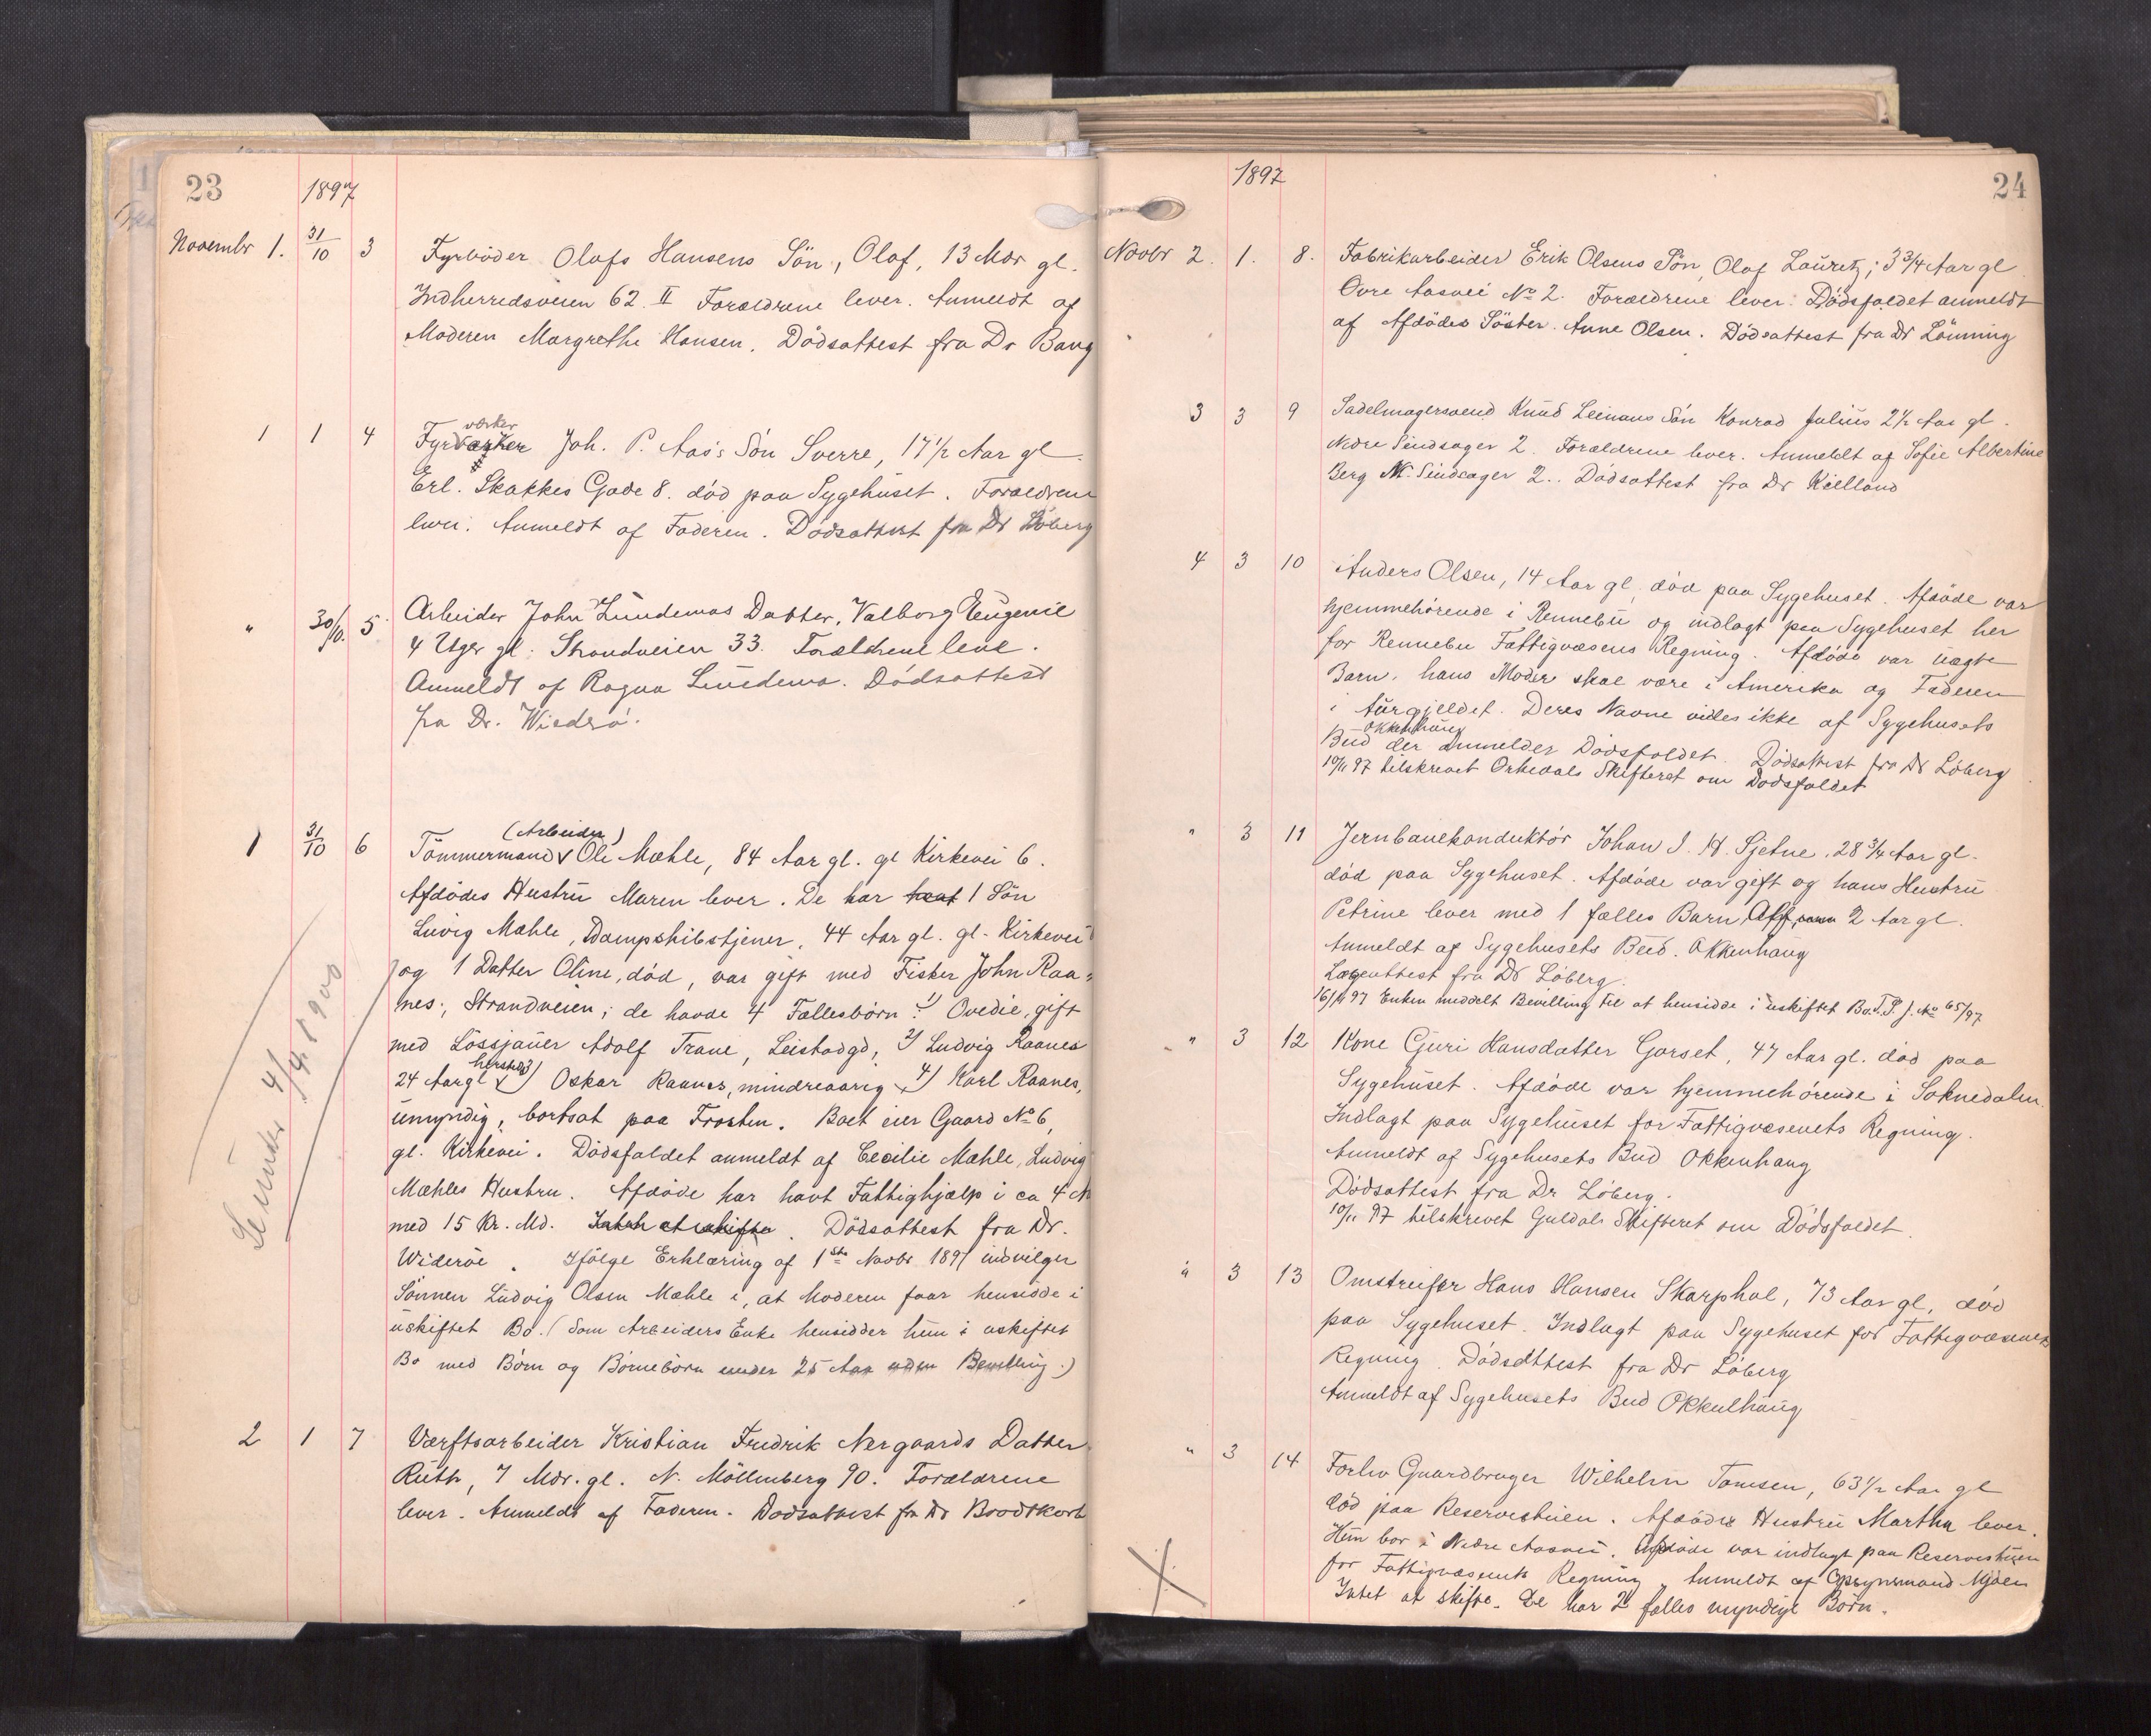 23
1897
Novembr 1. 31/10 3 Fyrböder Olafs Hansens Sön, Olaf, 13 Mdr gl.
Indherredsveien 62 II Forældrene lever. Anmeldt af
Moderen Margrethe Hansen. Dödsattest fra Dr Bang
1 1 4 Fyrvær­ker Joh. P. Aas's Sön Sverre, 17 1/2 Aar gl.
Erl. Skakkes Gade 8. död paa Sygehuset. Forældrene
lever. Anmeldt af Faderen. Dödsattest fra Dr Löberg
" 30/10. 5 Arbeider John Lundemos Datter, Valborg Eugenie
4 Uger gl. Strandveien 33. Forældrene leve.
Anmeldt af Ragna Lundemo. Dödsattest
fra Dr. Wiedrö.
1 31/10 6 (Arbeider)
Tömmermand Ole Mæhle, 84 Aar gl. gl Kirkevei 6.
Afdödes Hustru Maren lever. De har havt 1 Sön
Luvig Mæhle, Dampskibstjener, 44 Aar gl. gl. Kirkevei
og 1 Datter Oline, död, var gift med Fisker John Raa=
nes, Strandveien; de havde 4 Fællesbörn: 1) Ovedie, gift
med Lössjauer Adolf Trane, Leistadgd, 2) Ludvig Raanes
24 Aar gl 3) Oskar Raanes, mindreaarig 4) Karl Raanes,
umyndig, bortsat paa Frosten. Boet eier Gaard No 6,
gl. Kirkevei. Dödsfaldet anmeldt af Cecilie Mæhle, Ludvig
Mæhles Hustru. Afdöde har havt Fattighjælp i ca 4
med 15 Kr. Md. Intet at skifte. Dödsattest fra Dr.
Wideröe. Ifölge Erklæring af 1ste Novbr 1897 indvilger
Sönnen Ludvig Olsen Mæhle i, at Moderen faar hensidde i
uskiftet Bo. (Som Arbeiders Enke hensidder hun i uskiftet
Bo med Börn og Börnebörn under 25 Aar uden Bevilling.)
4/4 1900
2 1 7 Værftsarbeider Kristian Fredrik Nergaards Datter
Ruth, 7 Mdr. gl. N. Möllenberg 90. Forældrene
lever. Anmeldt af Faderen. Dödsattest fra Dr Broodtkorb
24
1897
Novbr 2. 1. 8. Fabrikarbeider Erik Olsens Sön, Olaf Lauretz, 3 3/4 Aar gl.
Övre Aasvei No 2. Forældrene lever. Dödsfaldet anmeldt
af Afdödes Söster Anne Olsen. Dödsattest fra Dr Lönning
3 3 9 Sadelmagersvend Knud Leinans Sön Konrad Julius 2 1/2 Aar gl.
Nedre Sindsager 2. Forældrene lever. Anmeldt af Sofie Albertine
Berg N. Sindsager 2. Dödsattest fra Dr Kielland
4 3 10 Anders Olsen, 14 Aar gl, död paa Sygehuset. Afdöde var
hjemmehörende i Rennebu og indlagt paa Sygehuset her
for Rennebu Fattigvæsens Regning. Afdöde var uægte
Barn, hans Moder skal være i Amerika og Faderen
i Aurgjeldet. Deres Navne vides ikke af Sygehusets
Bud Okkenhaug der anmelder Dödsfaldet. Dödsattest fra Dr Löberg
10/11 97 tilskrevet Orkedals Skifteret om Dödsfaldet
" 3 11 Jernbanekonduktör Johan J. H. Sjetne, 28 3/4 Aar gl.
död paa Sygehuset. Afdöde var gift og hans Hustru
Petrine lever med 1 fælles Barn 2 Aar gl.
Anmeldt af Sygehusets Bud. Okkenhaug
Lægeattest fra Dr Löberg.
16/11 97 Enken meddelt Bevilling til at hensidde i uskiftet Bo. T.P. J. No 65/97
" 3 12 Kone Guri Hansdatter Gorset, 47 Aar gl. död paa
Sygehuset. Afdöde var hjemmehörende i Soknedalen.
Indlagt paa Sygehuset for Fattigvæsenets Regning.
Anmeldt af Sygehusets Bud Okkenhaug
Dödsattest fra Dr Löberg.
10/11 97 tilskrevet Guldals Skifteret om Dödsfaldet.
" 3 13 Omstreifer Hans Hansen Skarphol, 73 Aar gl, död
paa Sygehuset. Indlagt paa Sygehuset for Fattigvæsenets
Regning. Dödsattest fra Dr Löberg
Anmeldt af Sygehusets Bud Okkulhaug
" 3 14 Forhv Gaardbruger Wilhelm Tomsen, 63 1/2 Aar gl
död paa Reservestuen. Afdödes Hustru Martha lever.
Hun bor i Nedre Aasvei. Afdöde var indlagt paa Reservestuen
for Fattigvæsenets Regning. Anmeldt af Opsynsmand Mjöen
Intet at skifte. De har 2 fælles myndige Börn.